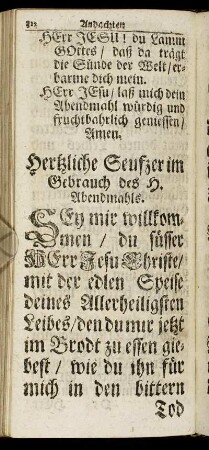 812 Andachten
HErr JESU! du Lamm
GOttes / daß da trägt
die Sünde der Welt / er-
barme dich mein.
HErr JEsu / laß mich dein
Abendmahl würdig und
fruchtbahrlich geniessen /
Amen.
Hertzliche Seufzer im
Gebrauch des H.
Abendmahls.
SEy mir willkom-
men / du süsser
HErr Jesu Christe /
mit der edlen Speise
deines Allerheiligsten
Leibes / den du mir jetzt
im Brodt zu essen gie-
best / wie du ihn für
mich in den bittern
Tod